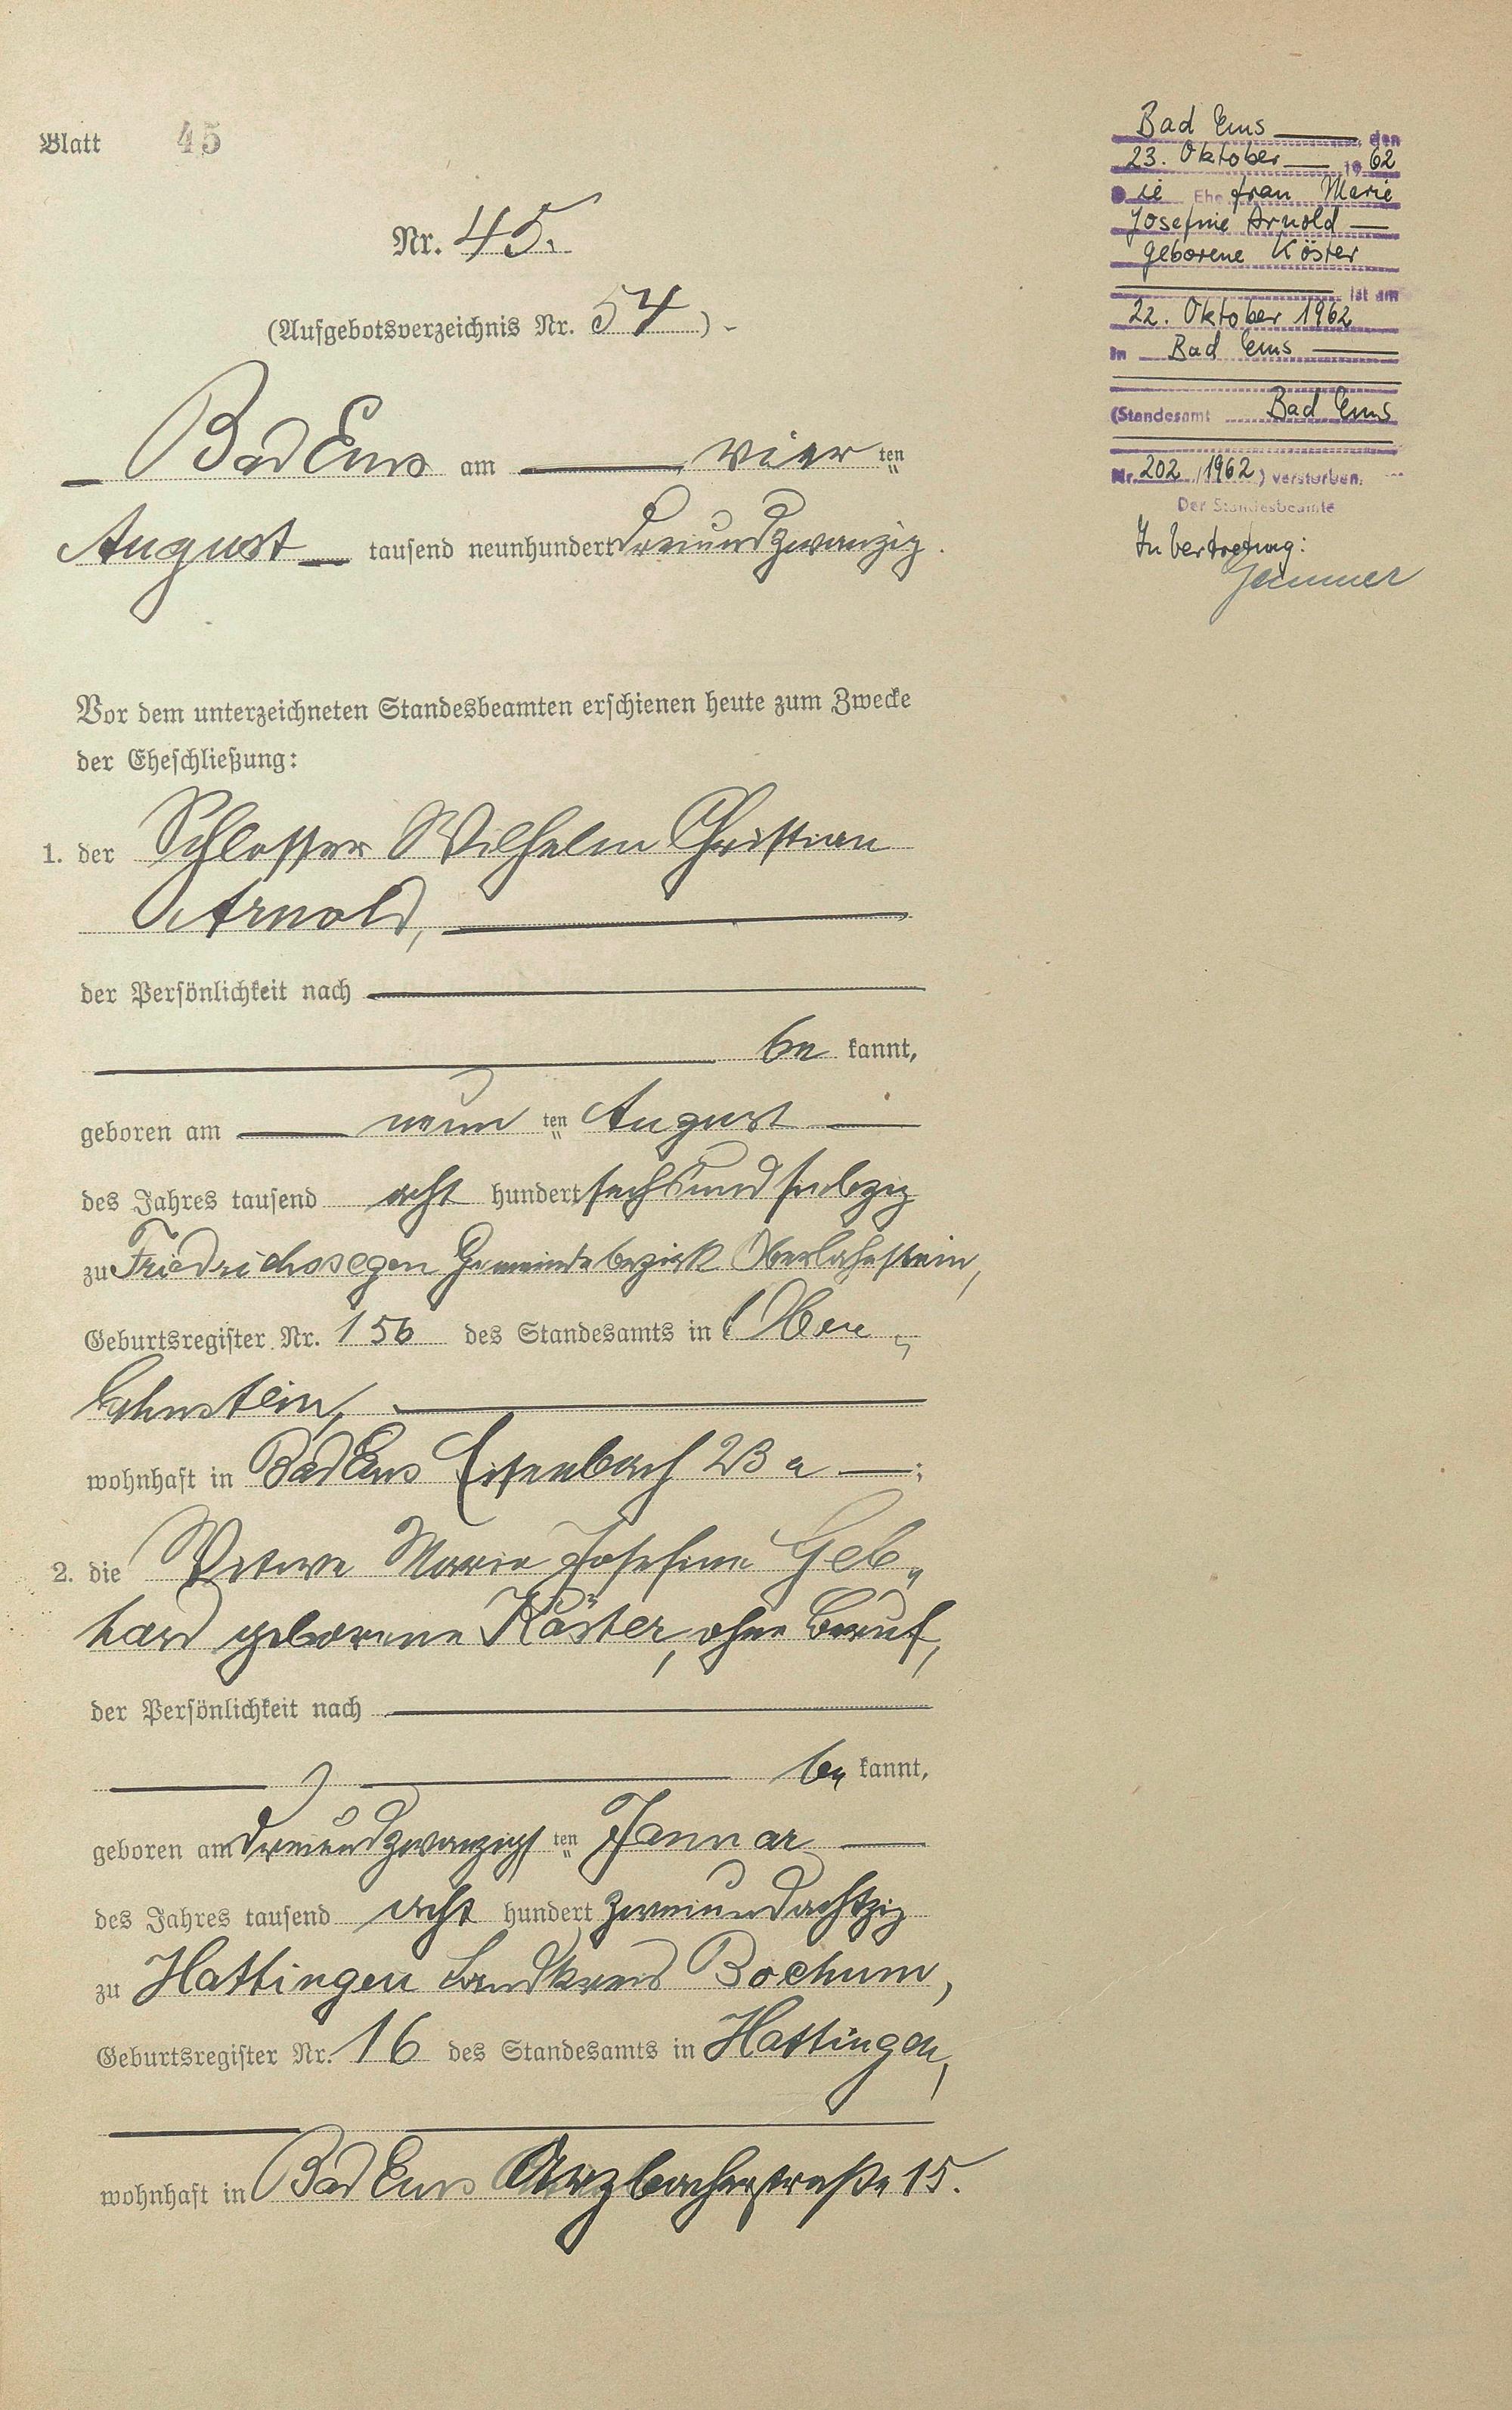 Blatt 45
Nr. 45.
(Aufgebotsverzeichnis Nr. 54) -
Bad Ems am vier ten
August tausend neunhundert dreiundzwanzig.
Vor dem unterzeichneten Standesbeamten erschienen heute zum Zwecke
der Eheschließung:
1. der Schlosser Wilhelm Christian
Arnold,
der Persönlichkeit nach
be kannt,
geboren am neun ten August
des Jahres tausend acht hundert sechsundsiebzig
zu Friedrichssegen Gemeindebezirk Oberlahnstein,
Geburtsregister Nr. 156 des Standesamts in Ober-
lahnstein,
wohnhaft in Bad Ems Eisenbach 23 a;
2. die Witwe Maria Josefine Geb-
hard geborene Köster, ohne Beruf,
der Persönlichkeit nach
be kannt,
geboren am dreiundzwanzigs ten Januar
des Jahres tausend acht hundert zweiundachtzig
zu Hattingen Landkreis Bochum,
Geburtsregister Nr. 16 des Standesamts in Hattingen,
wohnhaft in Bad Ems Arzbacherstraße 15.
Bad Ems, den
23. Oktober 1962
Die Ehefrau Marie
Josefine Arnold
geborene Köster
ist am
22. Oktober 1962
in Bad Ems
(Standesamt Bad Ems
Nr. 202 /1962) verstorben.
Der Standesbeamte
In Vertretung: